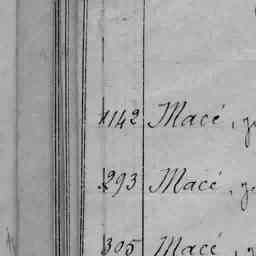 1142 Macé, g
293 Macé, g
305 Macé, g